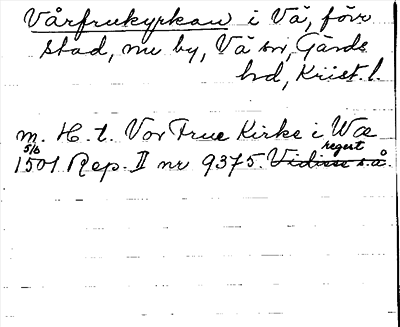 Vårfrukyrkan i Vä, förr
stad, nu by, Vä sn, Gärds
hd, Krist. l.
m. H. t. Vor Frue Kirke i Wæ
5/6
1501 Rep. II nr 9375. Vidisse s. å.
regest